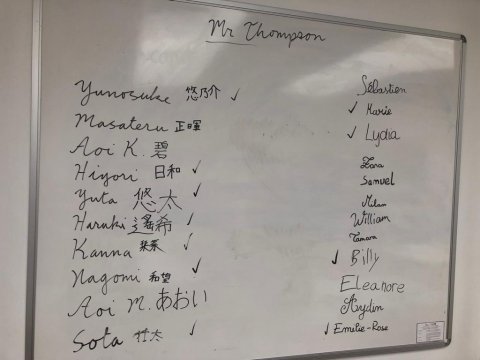 Mr Thompson
Yunosuke 悠乃介 ✓
Masateru 正暉
Aoi K. 碧
Hiyori 日和 ✓
Yuta 悠太 ✓
Haruki 遥希 ✓
Kanna 栞菜 ✓
Nagomi 和望 ✓
Aoi M. あおい
Sota 壮太 ✓
Sébastien
✓ Marie
✓ Lydia
Zara
Samuel
Milan
William
Tamara
✓ Billy
Eleanore
Aydin
✓ Emelie-Rose